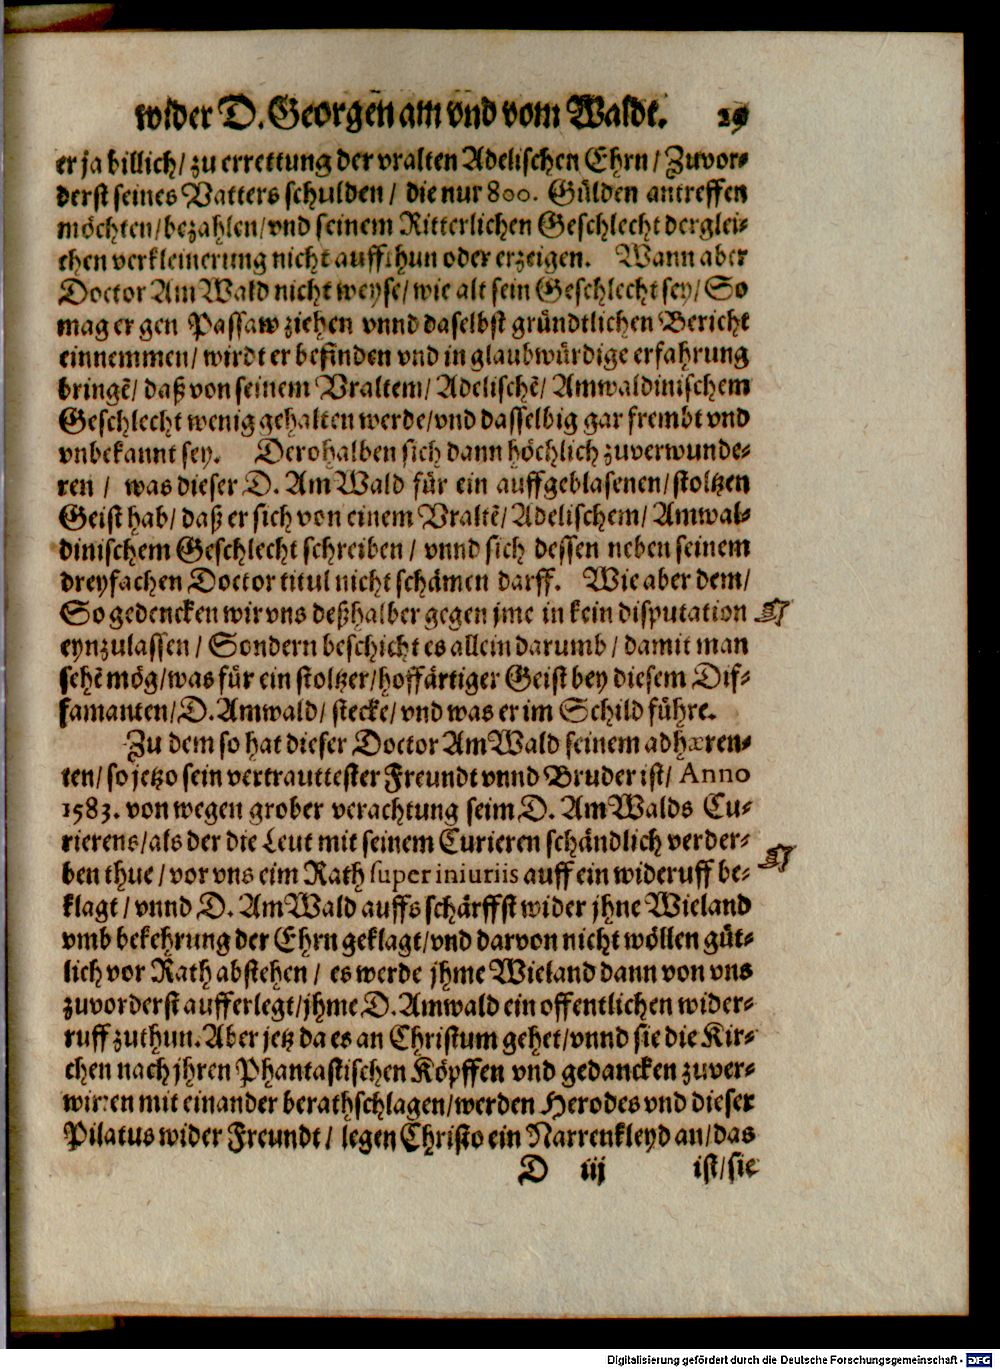 wider D. Georgen am vnd vom Waldt. 29
er ja billich/ zu errettung der vralten Adelischen Ehrn/ Zuvor-
derst seines Vatters schulden/ die nur 800. Gülden antreffen
möchten/ bezahlen/ vnd seinem Ritterlichen Geschlecht derglei-
chen verkleinerung nicht auffthun oder erzeigen. Wann aber
Doctor Am Wald nicht weyse/ wie alt sein Geschlecht sey/ So
mag er gen Passaw ziehen vnnd daselbst gründtlichen Bericht
einnemmen/ wirdt er befinden vnd in glaubwürdige erfahrung
bringē/ daß von seinem Vraltem/ Adelischē/ Amwaldinischem
Geschlecht wenig gehalten werde/ vnd dasselbig gar frembt vnd
vnbekannt sey. Derohalben sich dann höchlich zuverwunde-
ren/ was dieser D. Am Wald für ein auffgeblasenen/ stoltzen
Geist hab/ daß er sich von einem Vraltē/ Adelischem/ Amwal-
dinischem Geschlecht schreiben/ vnnd sich dessen neben seinem
dreyfachen Doctor titul nicht schämen darff. Wie aber dem/
So gedencken wir vns deßhalber gegen jme in kein disputation
eynzulassen/ Sondern beschicht es allein darumb/ damit man
sehē mög/ was für ein stoltzer/ hoffärtiger Geist bey diesem Dif-
famanten/ D. Amwald/ stecke/ vnd was er im Schild führe.
Zu dem so hat dieser Doctor Am Wald seinem adhæren-
ten/ so jetzo sein vertrauttester Freundt vnnd Bruder ist/ Anno
1583. von wegen grober verachtung seim D. Am Walds Cu-
rierens/ als der die Leut mit seinem Curieren schändlich verder-
ben thue/ vor vns eim Rath super iniuriis auff ein wideruff be-
klagt/ vnnd D. Am Wald auffs schärffst wider jhne Wieland
vmb bekehrung der Ehrn geklagt/ vnd darvon nicht wöllen güt-
lich vor Rath abstehen/ es werde jhme Wieland dann von vns
zuvorderst aufferlegt/ jhme D. Amwald ein offentlichen wider-
ruff zuthun. Aber jetz da es an Christum gehet/ vnnd sie die Kir-
chen nach jhren Phantastischen Köpffen vnd gedancken zuver-
wirren mit einander berathschlagen/ werden Herodes vnd dieser
Pilatus wider Freundt/ legen Christo ein Narrenkleyd an/ das
D iij ist/ sie
Digitalisierung gefördert durch die Deutsche Forschungsgemeinschaft - DFG